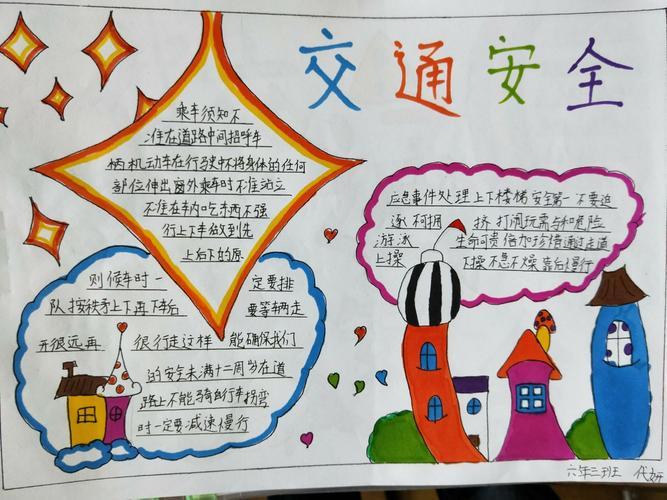 交通安全
乘车须知不
准在道路中间招呼车
辆机动车在行驶中不将身体的任何
部位伸出窗外乘车时不准站立
不准在车内吃东西不强
行上下车做到先
上后下的原
应急事件处理上下楼梯安全第一不要追
逐不拥挤打闹玩需与和危险
游泳 生命可贵倍加珍惜通过走道
上操 下操不急不燥靠右慢行
则候车时一定要排
队按秩矛上下再下车后要等辆走
开很远再很行走这样能确保我们
的安全未满十二周岁在道
路上不能骑自行车拐弯
时一定要减速慢行
六年三班 代妍